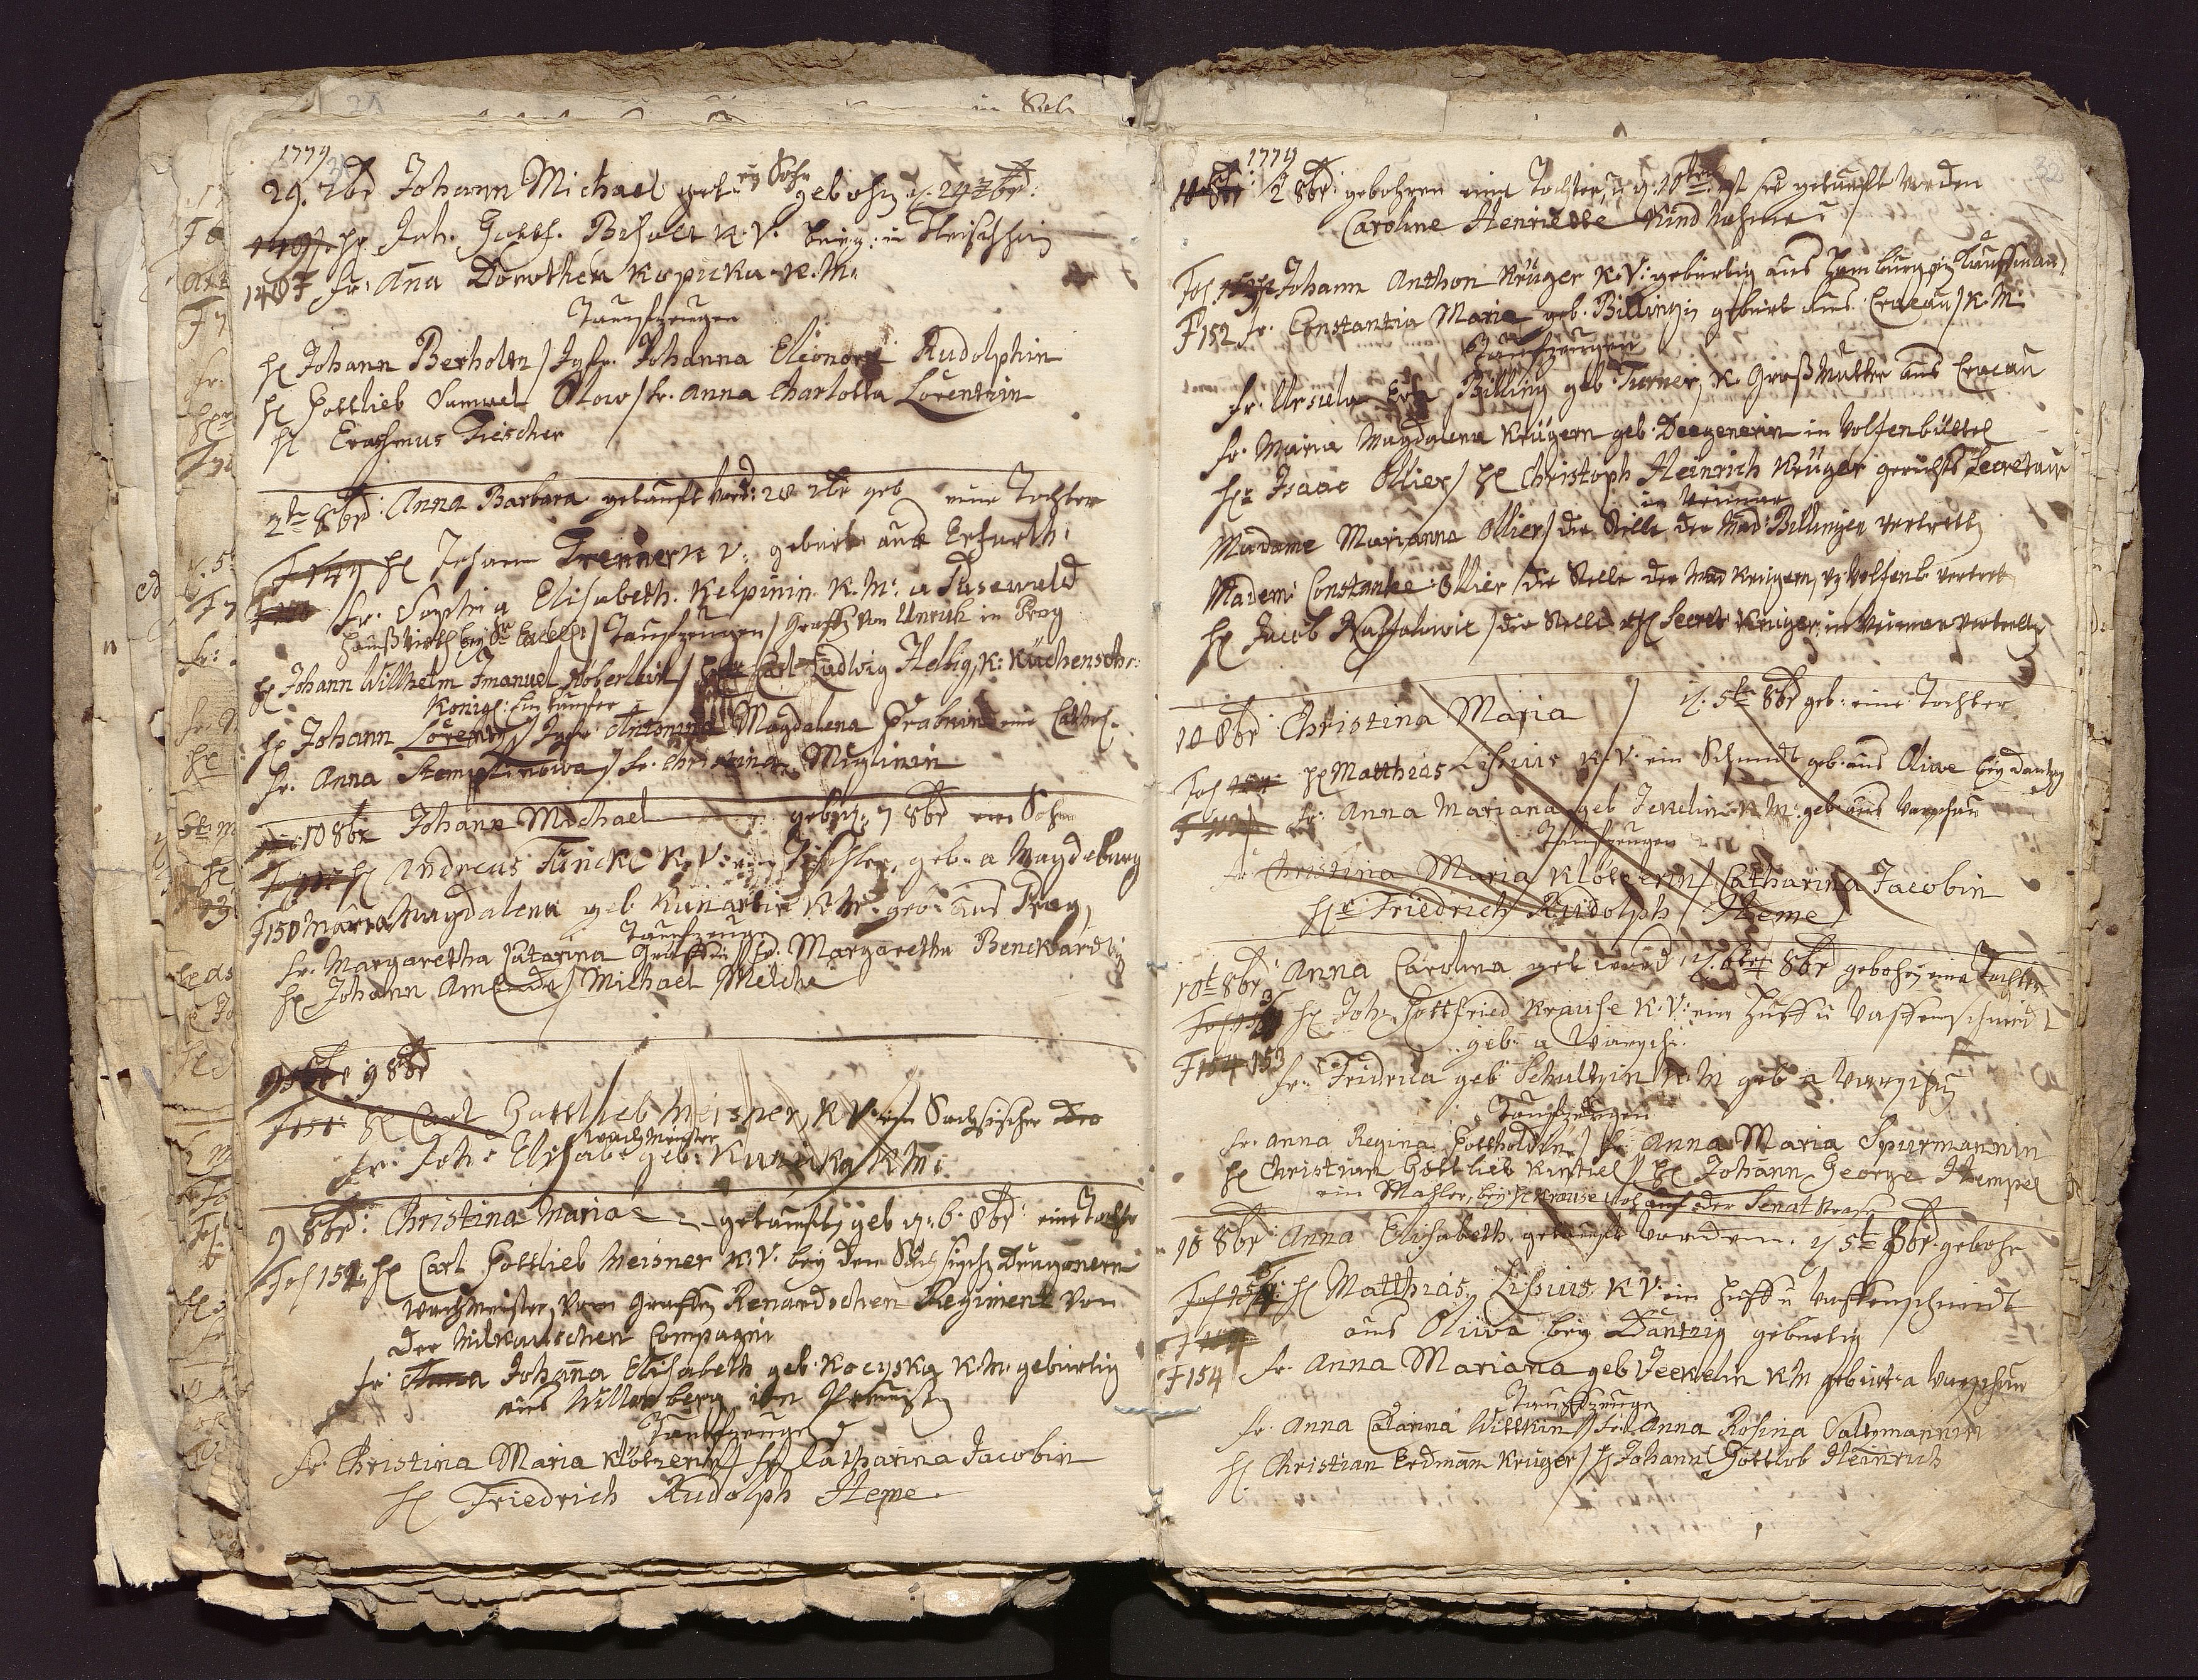 1779
29. 7br Johann Michael get. ein Sohn gebohrn d. 24 7br:
149. H Joh. Gottf. K.V. Fleischhau
149 F fr: Anna Dorothea Kopicka K.M.
Taufzeugen
H Johann Berholtz / Jgfr. Johanna Eleonora Rudolphin
H Gottlieb Samuel Olow / fr. Anna Charlotta Lorentzin
H Erasmus Fiescher
2te 8br: Anna Barbara getauft word: 28 7br geb eine Tochter
F 149 H Johann Trenner K V: gebürt aus Erfurth.
fr. Sophia Elisabeth Kelpinin K.M: a Pasewald
Taufzeugen / Graff von Unruh in Prag
H Johann Willhelm Imanuel Röberlein / Carl Ludwig Helbig, K: Küchenschr:
Königl: Einkaufer
H Johann Lorentz / Jgfr Antonina Magdalena Prahnin eine Cathol.
fr. Anna Stemplinowa / fr. Christina Miglinin
10 8br Johann Michael geb d. 7 8br ein Sohn
H Andreas Funcke K.V: ein Tischler, geb. a Magdeburg
F150 Maria Magdalena geb K.M. geb. aus Prag,
Taufzeuge
fr. Margaretha Catarina Gräffin / fr. Margaretha Benckardtin
H Johann Amende / Michael Melche
9 8br
F 151: H Carl Gottlieb Meisner K V ein Sachsischer Dra
wachtmeister
fr. Joh: Elisab: geb: K.M:
9 8br: Christina Maria getauft, geb d. 6. 8br: eine Tocht
Fol 151 H Carl Gottlieb Meisner K.V. bey den Sächsischen Dragonern
wachtmeister, vom Graffen Renardschen Regiment von
der Milkauschen Compagni
fr Anna Johanna Elisabeth geb. Kocyska K.M. gebürtig
aus Willenberg in Preussen
Taufzeugen
fr. Christina Maria Klötzerin / fr Catharina Jacobin
H Friedrich Rudolph Heme
1779
10 8br 2 8br: gebohren eine Tochter, u d. 10ten ist sie getauft worden
Caroline Henriette Kind Nahme
Fol H Johann Anthon Krüger K.V: gebürtig aus Hamburg ein Kauffman
F 152 fr. Constantia Maria geb. Billingin gebürt aus Cracau / K.M.
Taufzeugen
fr. Ursula Billing geb. Turner, K. GroßMutter aus Cracau
fr. Maria Magdalena Krügern geb. Deegenerin in Wolfenbüttel
H: Isaac Ollier / H Christoph Heinrich Krüger gerichts Secretair
in Weimar
Madame Marianna Ollier / die Stelle der Mad: Billingen vertrett
Madem: Constantee Ollier / die Stelle der Mad Krügern, v Wolfenb vertret
H Jacob / die Stelle H Secret Krüger in Weimar vertrett
10 8br Christina Maria / d. 5te 8br geb: eine Tochter
Fol 154 H Matthias Lissius K.V. ein Schmidt geb. aus Oliwe bey Dantzig
fr. Anna Mariana geb Jekelin K.M. geb. aus Warschau
Taufzeugen
Christina Maria Klötzerin / Catharina Jacobin
H Friedrich Rudolph / Heme
10t 8br Anna Carolina get word: d. 6ten 8br gebohrn eine Tochter
H Joh. Gottfried Krause K.V: ein Huff u Waffenschmidt
geb. a Warsch:
F 154 153 fr: Fridrica geb Schultzin K.M geb a Warschau
Taufzeugen
fr. anna Regina Gottholdin / fr: Anna Maria Spurmannin
H Christian Gottlieb Kirstiel / H Johann George Hempel
ein Mahler, bey H Krause auf der Senat Strasse
10 8br Anna Elisabeth getauft worden. d 5te 8br. gebohr
H Matthias Lissius K V: ein Huff u Waffenschmidt
aus Oliwa bey Dantzig gebürtig
F 154 fr. Anna Mariana geb Jeekelin KM gebürt. a Warschau
Taufzeugen
fr. Anna Catarina Wittkin / fr: Anna Rosina Saltzmannin
H Christian Erdmann Krüger / H Johann Gottlob Heinrich